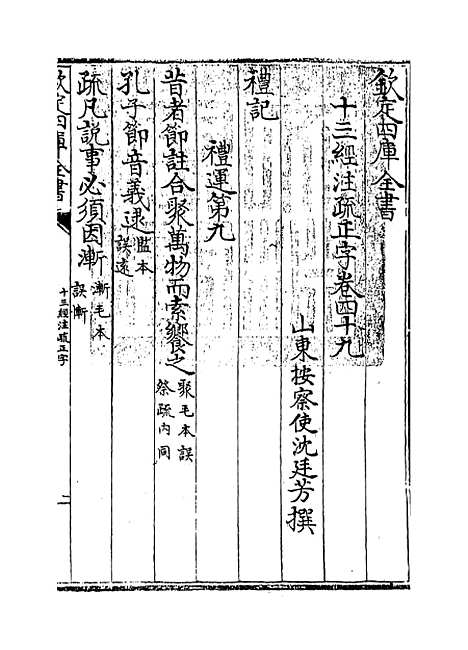 欽定四庫全書
十三經注疏正字卷四十九
山東按察使沈廷芳撰
禮記
禮運第九
昔者節註合聚萬物而索饗之聚毛本誤祭疏內同
孔子節音義逮監本誤遠
疏凡說事必須因漸漸毛本誤慚
欽定四庫全書
十三經注疏正字
一